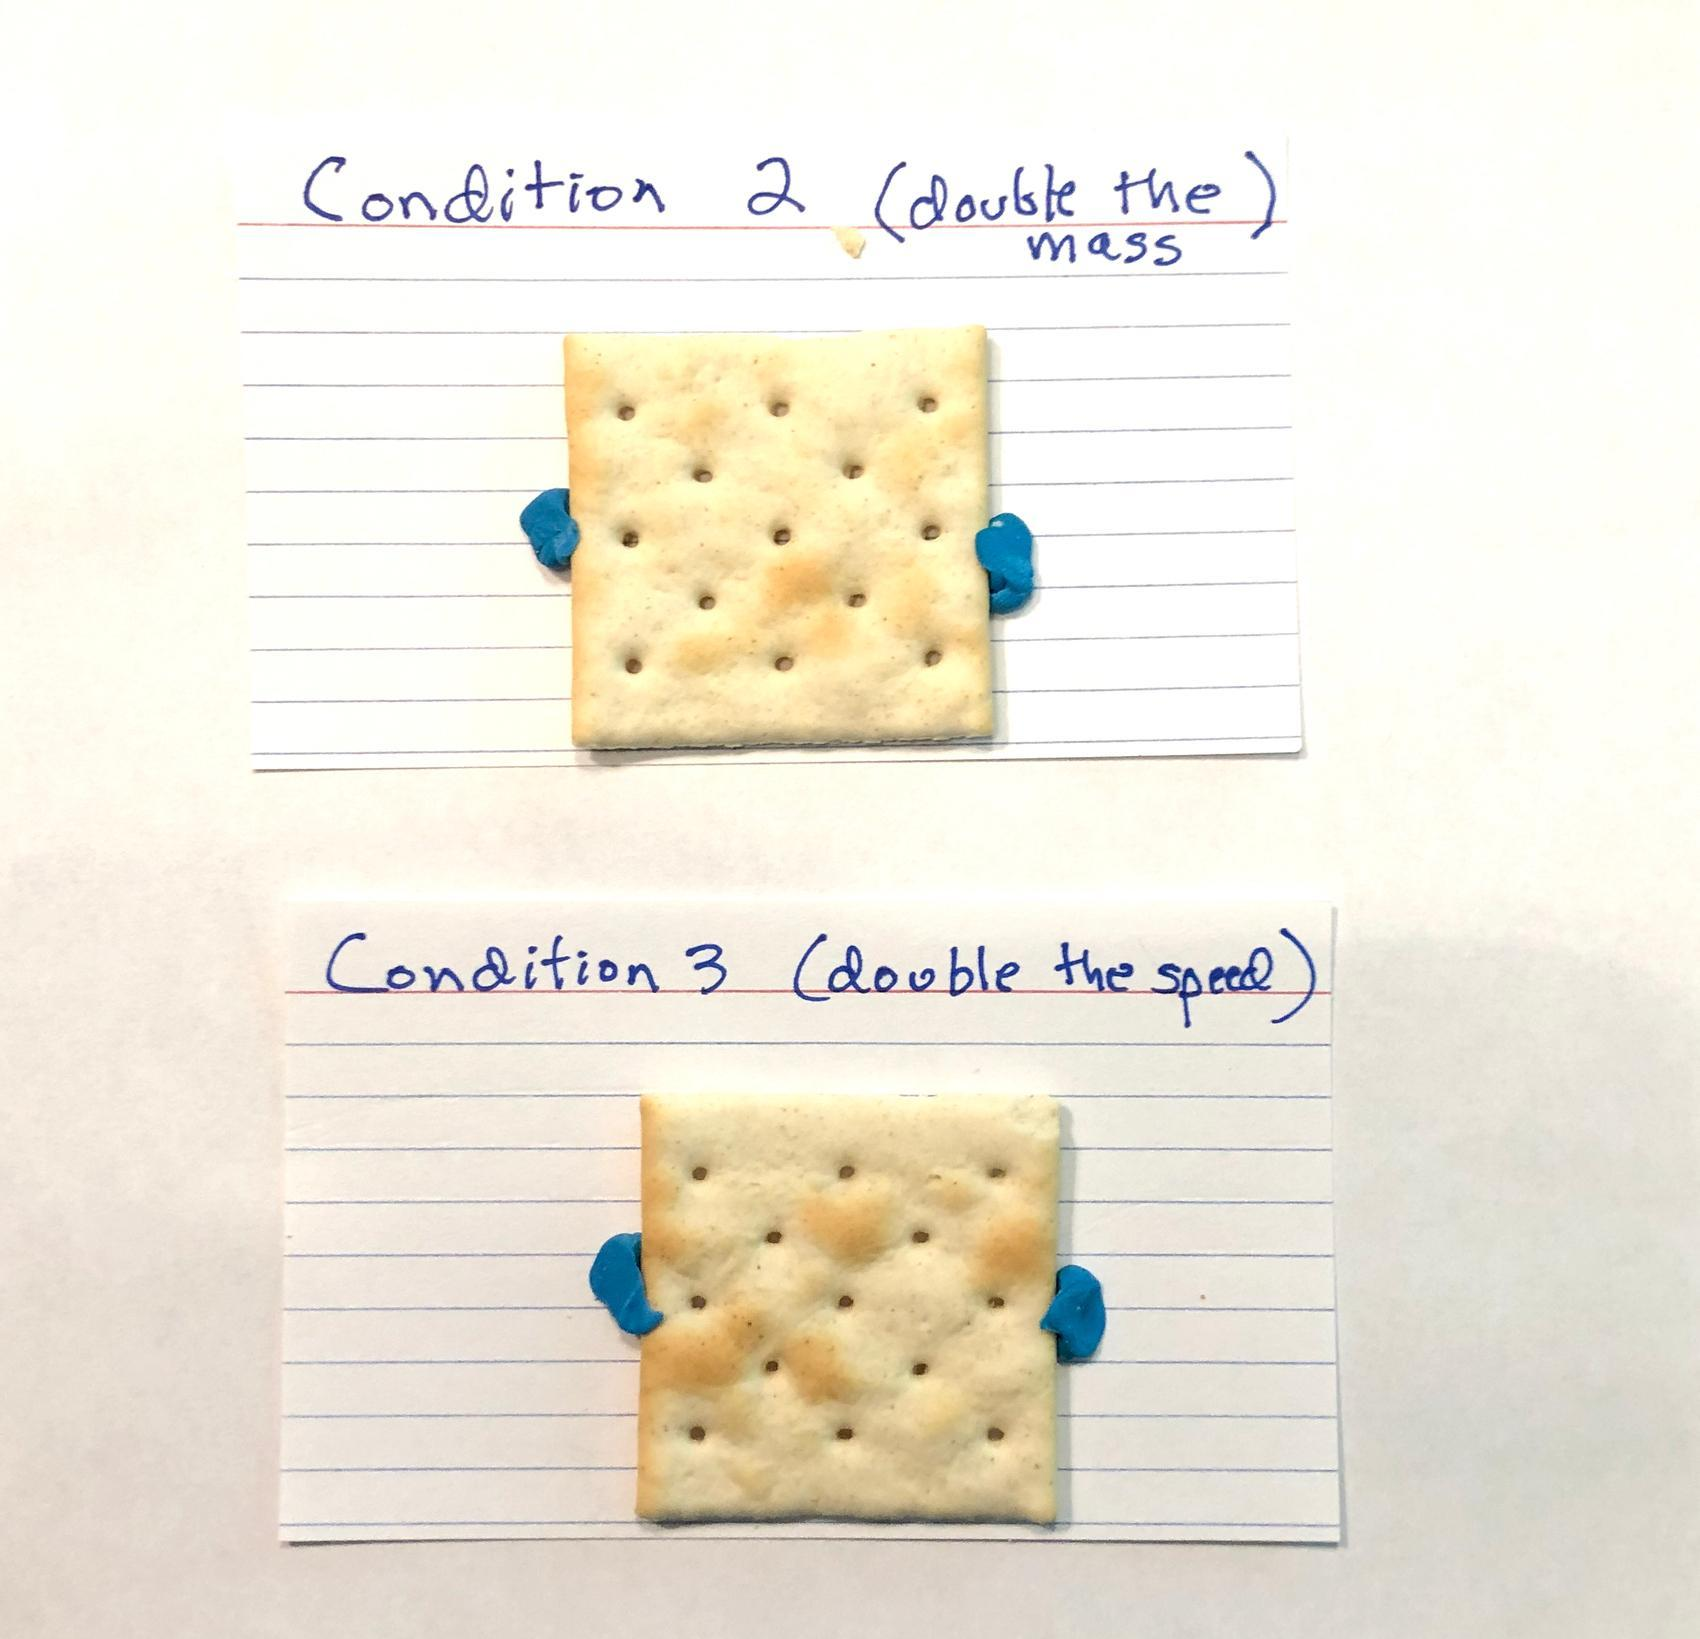 Condition 2 (double the)
mass
Condition 3 (double the speed)